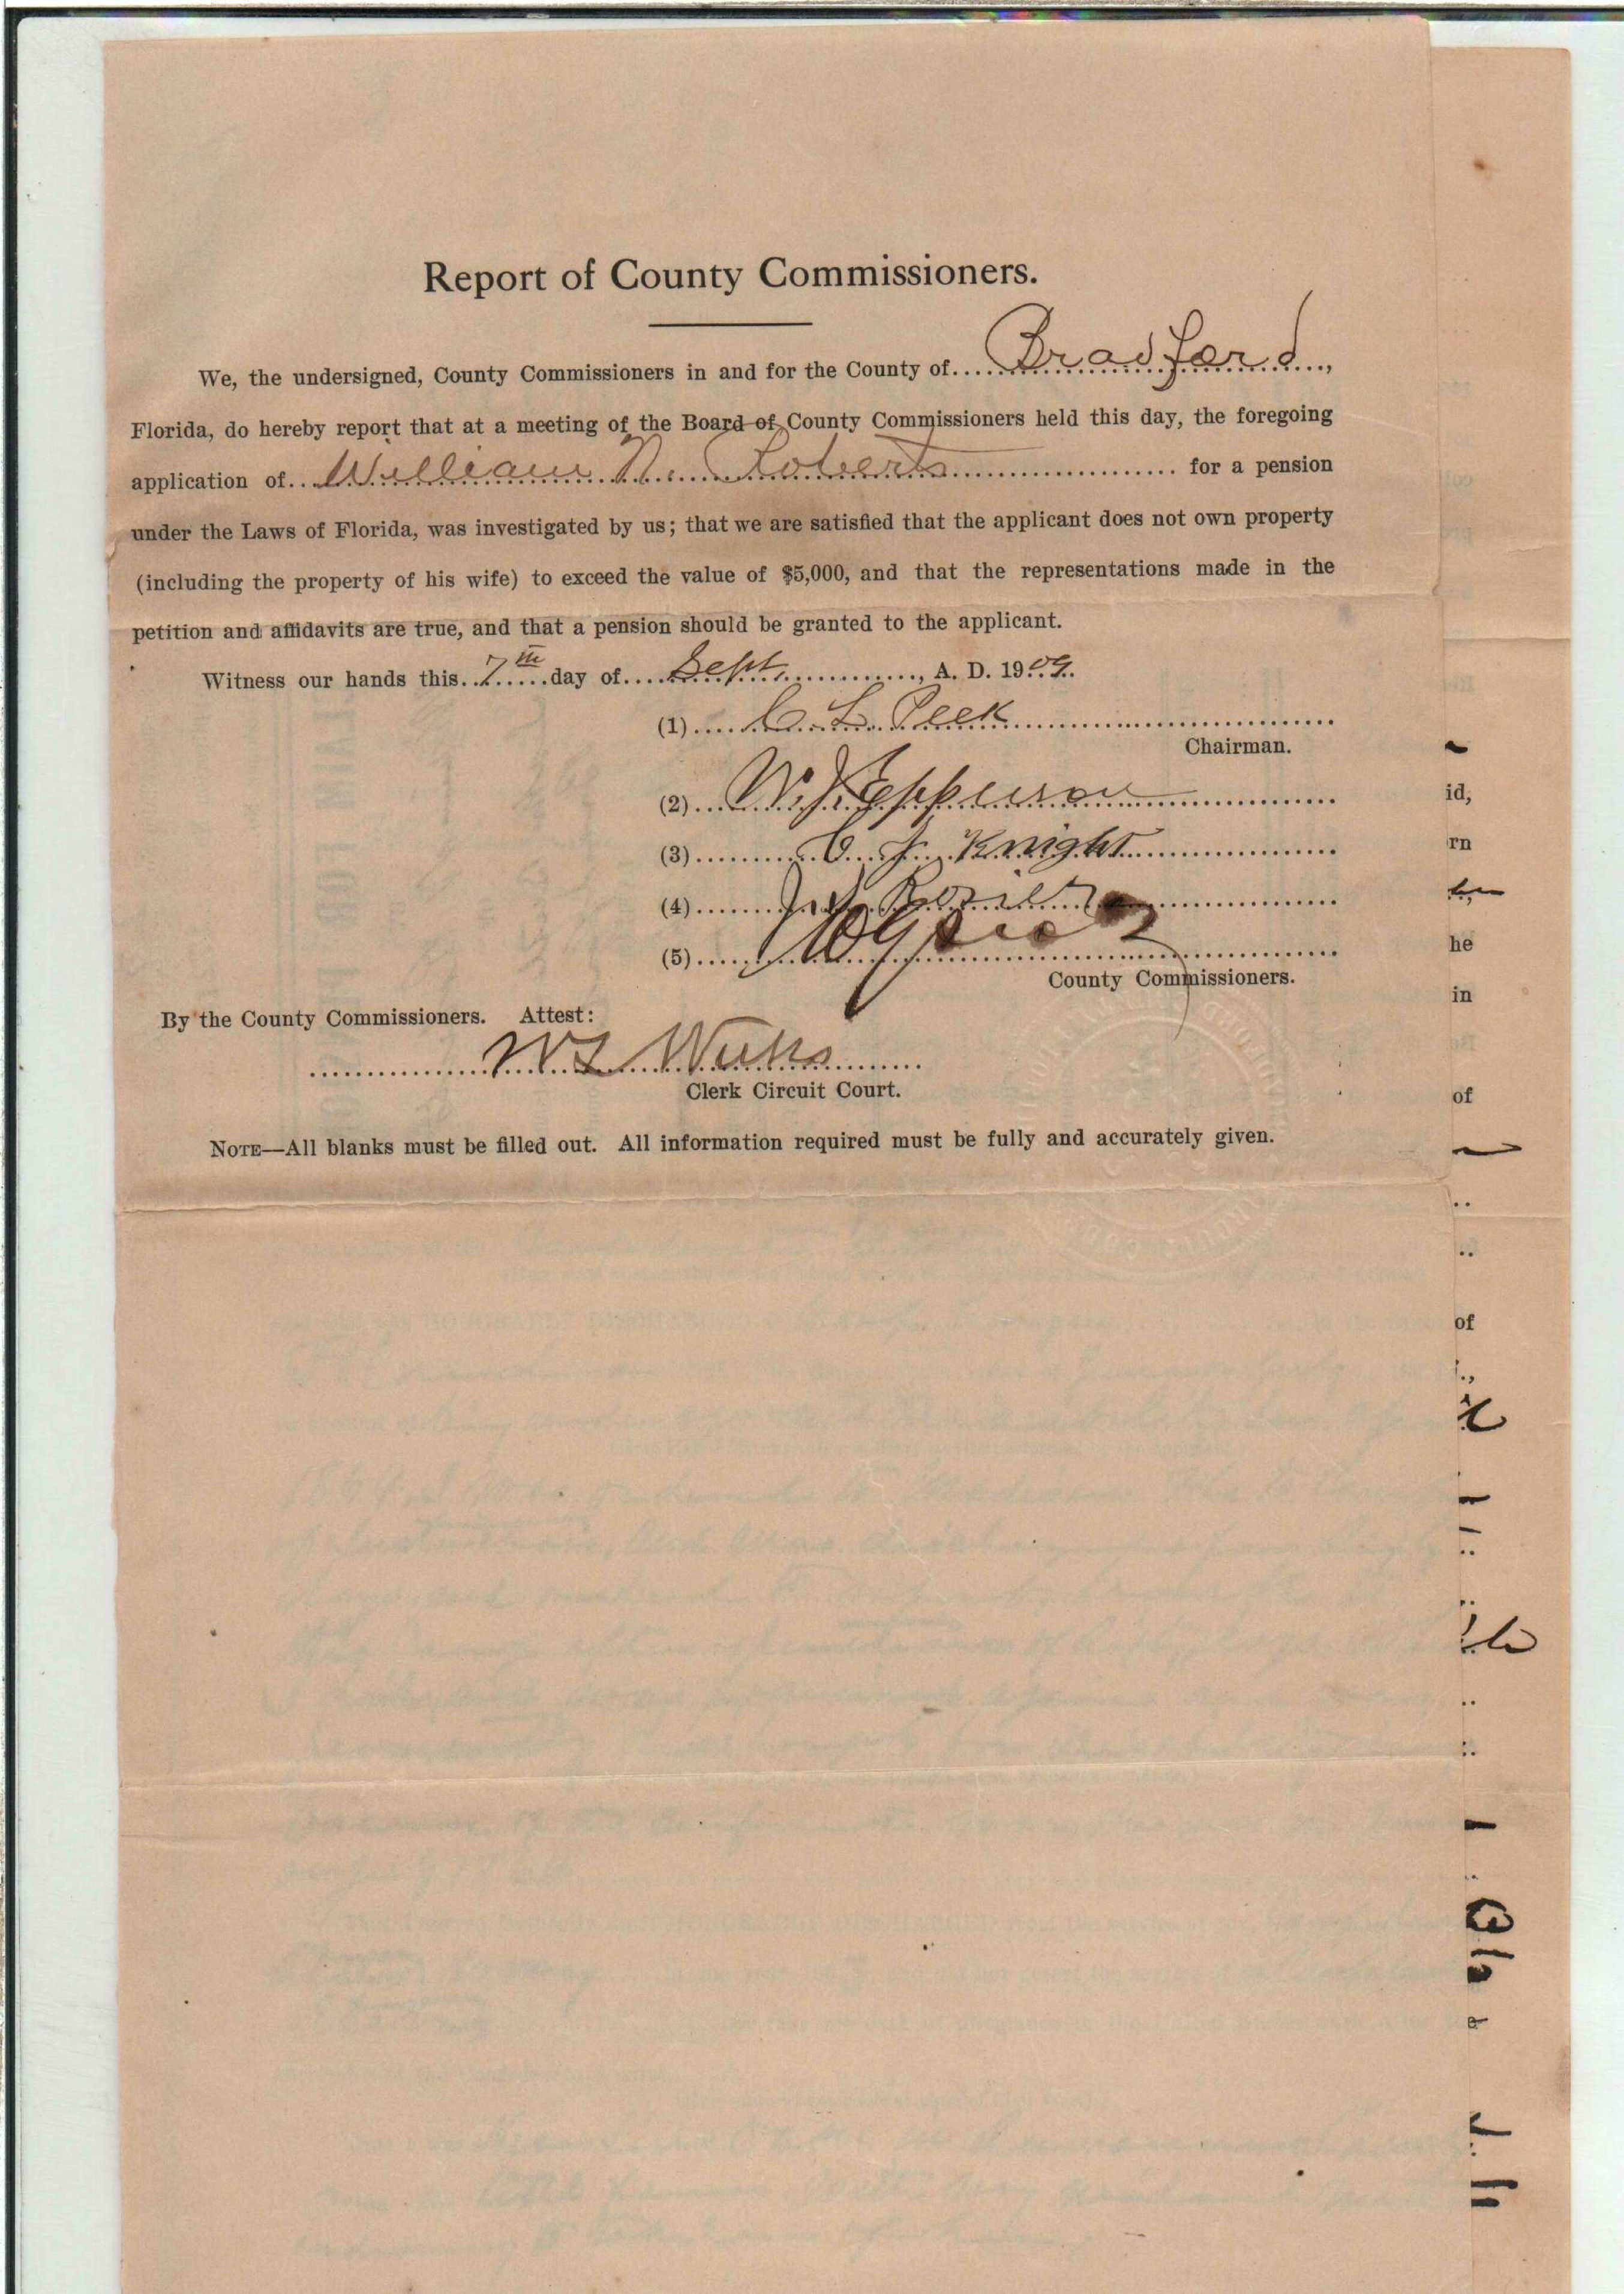 Report of County Commissioners.
We, the undersigned, County Commissioners in and for the County of Bradford,
Florida, do hereby report that at a meeting of the Board of County Commissioners held this day, the foregoing
application of William N. Roberts for a pension
under the Laws of Florida, was investigated by us; that we are satisfied that the applicant does not own property
(including the property of his wife) to exceed the value of $5,000, and that the representations made in the
petition and affidavits are true, and that a pension should be granted to the applicant.
Witness our hands this 7th day of Sept, A. D. 1909.
(1) C. L. Peek
Chairman.
(2) W. J. Epperson
(3) C. J. Knight
(4) Rosier
(5)
County Commissioners.
By the County Commissioners. Attest:
Clerk Circuit Court.
NOTE—All blanks must be filled out. All information required must be fully and accurately given.
id,
rn
he
in
of
of